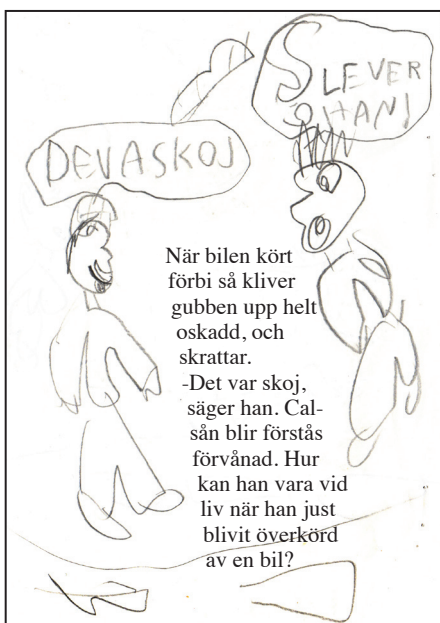 DEVASKOJ
LEVER
HAN
När bilen kört
förbi så kliver
gubben upp helt
oskadd, och
skrattar.
-Det var skoj,
säger han. Cal-
sån blir förstås
förvånad. Hur
kan han vara vid
liv när han just
blivit överkörd
av en bil?